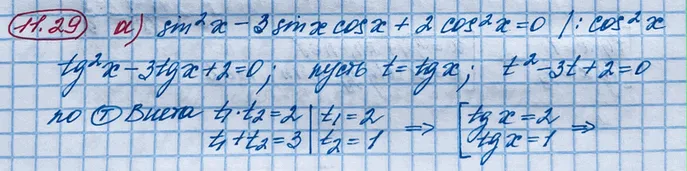 11.29 а) sin²x - 3 sinx cosx + 2 cos²x = 0 /: cos²x
tg²x - 3tgx + 2 = 0; пусть t = tgx; t² - 3t + 2 = 0
по Ⓣ Виета t₁·t₂ = 2 | t₁ = 2 ⇒ [ tgx = 2
t₁ + t₂ = 3 | t₂ = 1 tgx = 1 ⇒